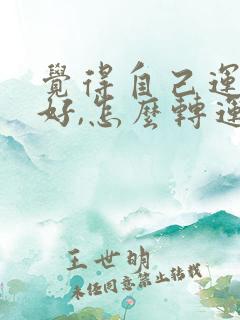 覺得自己運
好,怎麼轉運
王世明
未經同意禁止轉載